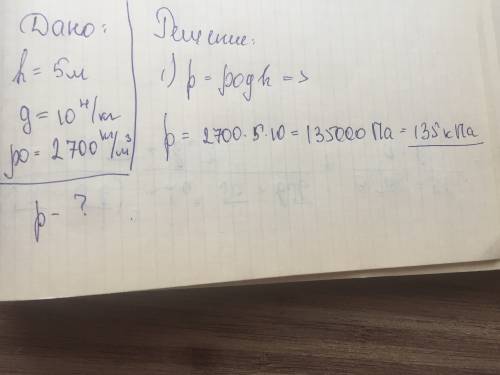 Дано:
h = 5м
g = 10 Н/кг
po = 2700 кг/м³
p - ?
Решение:
1) p = pogh =>
p = 2700 · 5 · 10 = 135000 Па = 135 кПа